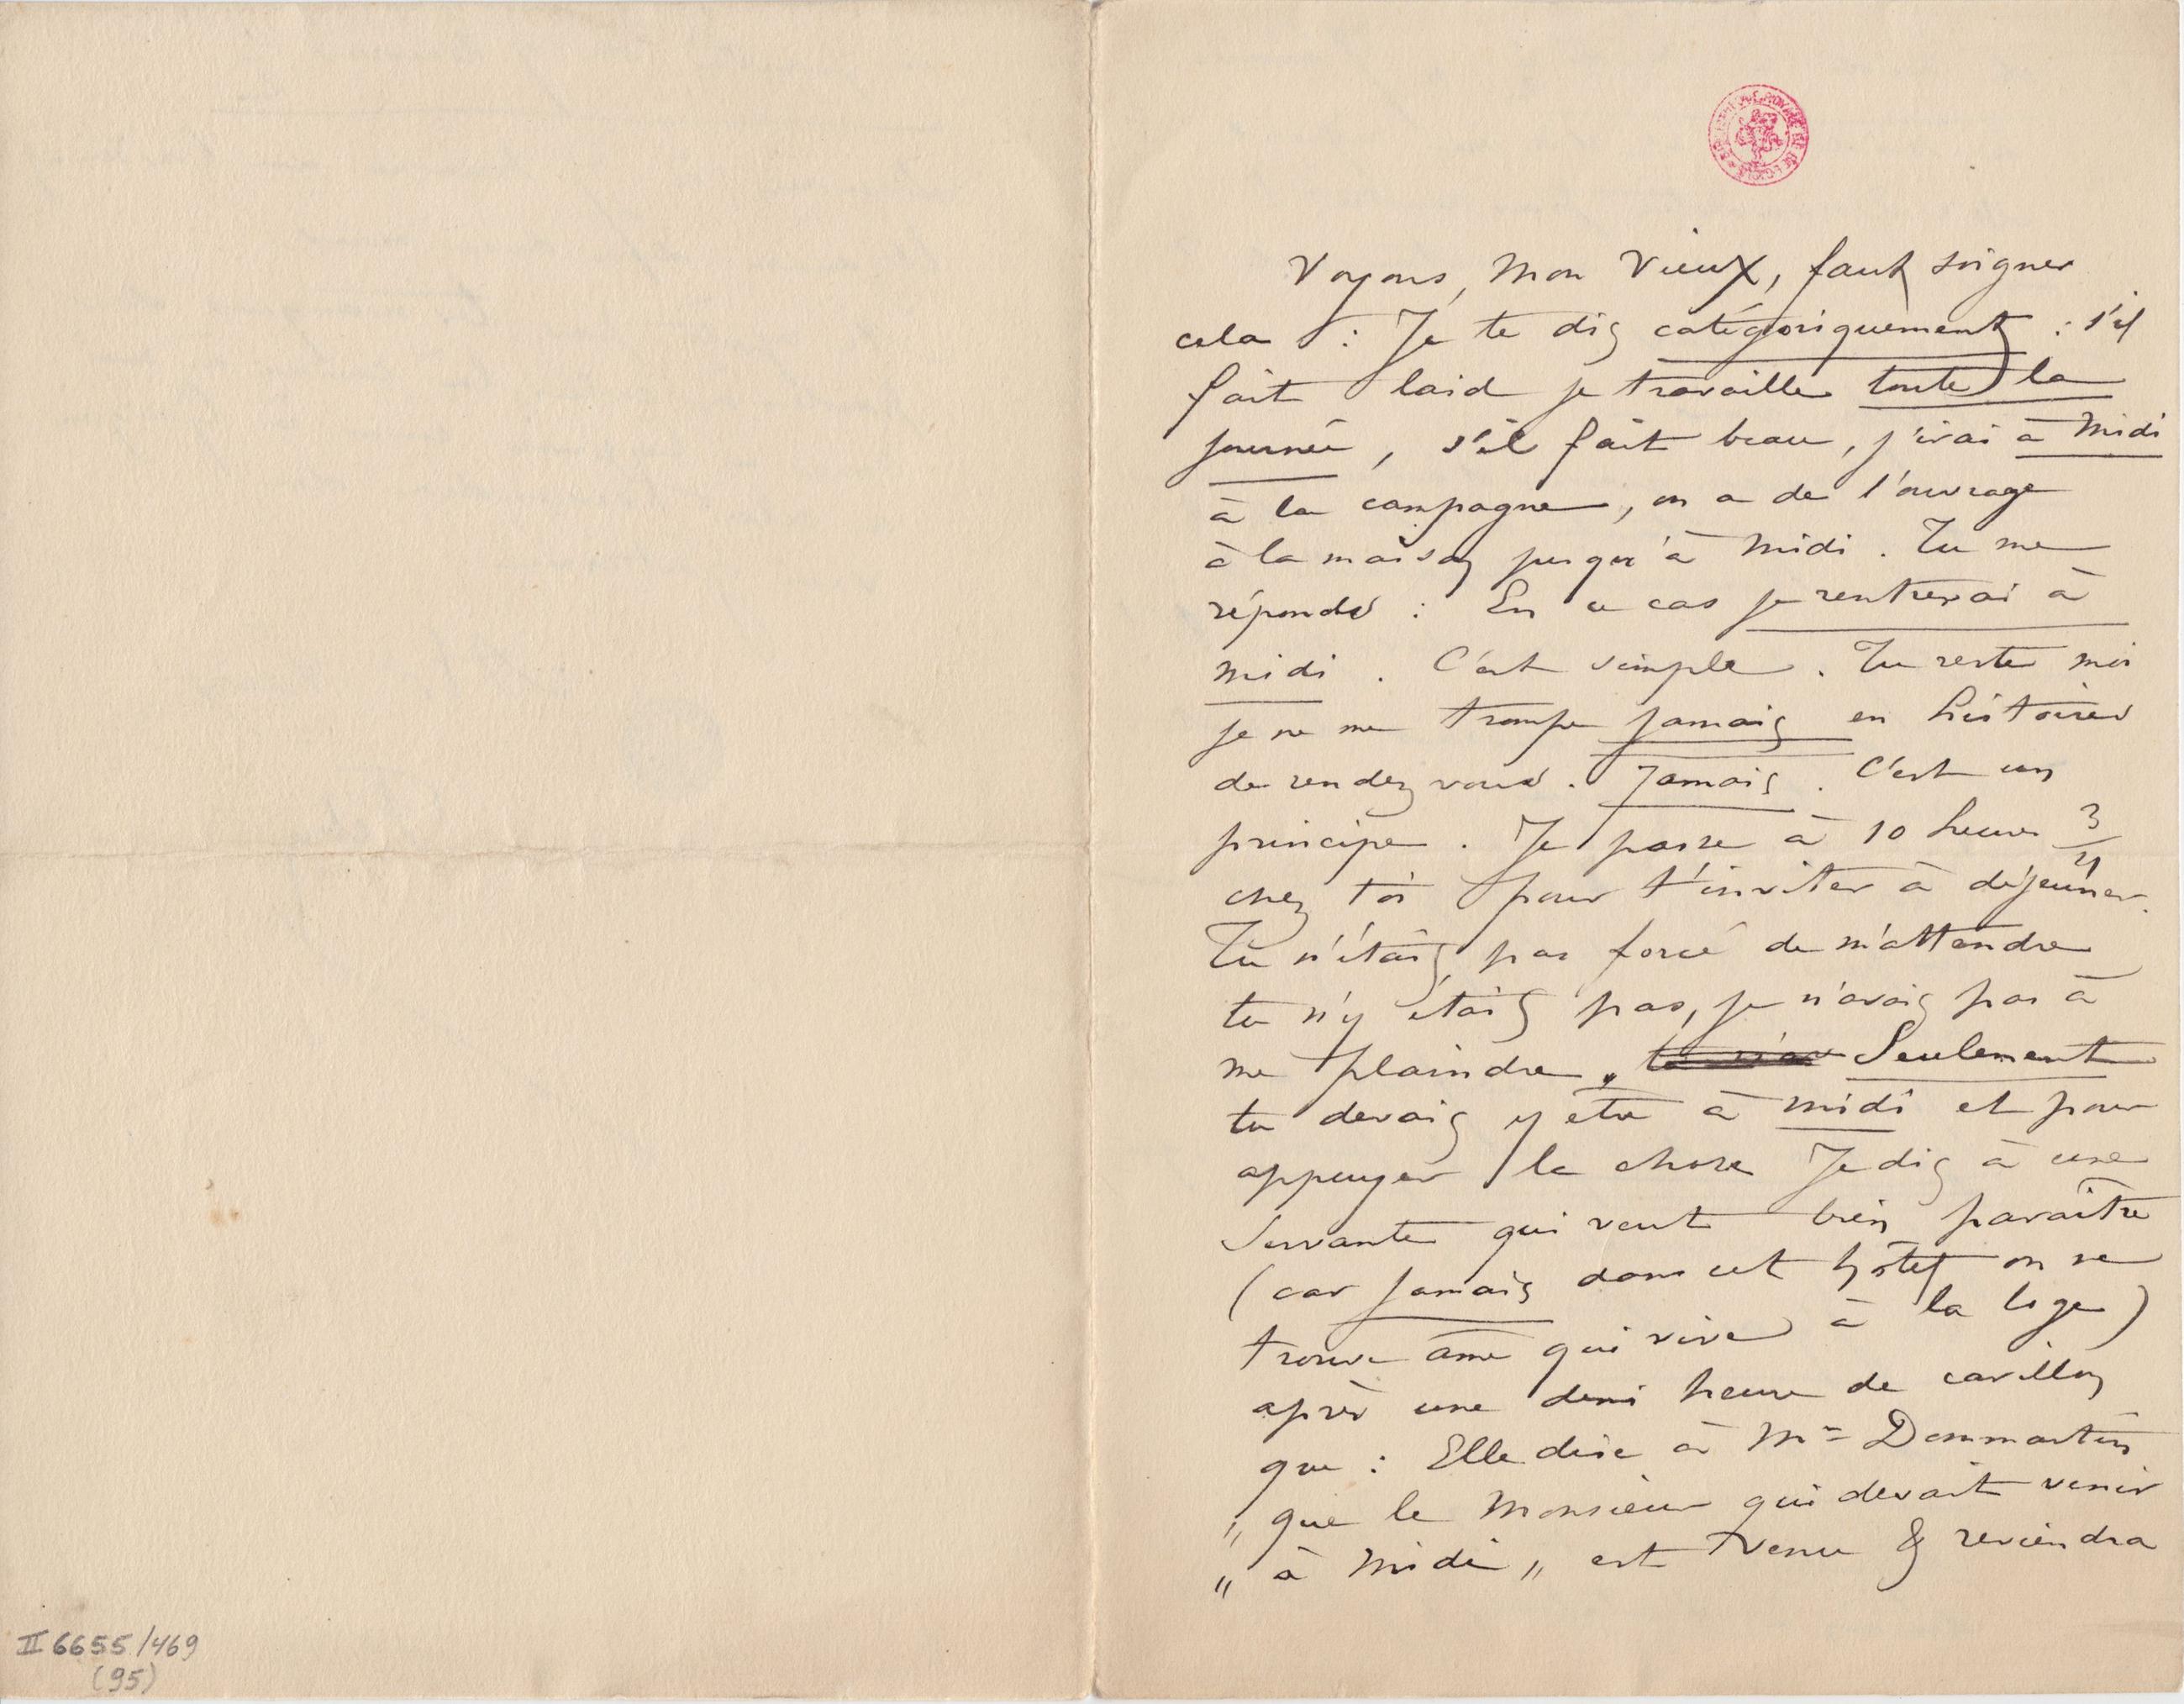 Voyons, Mon Vieux, faut soigner
cela : Je te dis catégoriquement : s'il
fait laid je travaille toute la
journée, s'il fait beau, j'irai à Midi
à la campagne, on a de l'ouvrage
à la maison jusqu'à Midi. Tu me
réponds : En ce cas je rentrerai à
Midi. C'est simple. Du reste moi
je ne me trompe jamais en histoires
de rendez vous. Jamais. C'est un
principe. Je passe à 10 heures 3/4
chez toi pour t'inviter à déjeuner.
Tu n'étais pas forcé de m'attendre
tu n'y étais pas, je n'avais pas à
me plaindre, Seulement
tu devais y être à midi et pour
appuyer la chose Je dis à une
Servante qui veut bien paraître
(car jamais dans cet hôtel on ne
trouve âme qui vive à la loge)
après une demi heure de carillon
que : Elle dise à Mr Dommartin
„ que le Monsieur qui devait venir
„ à Midi „ est venu & reviendra
II 6655/469
(95)